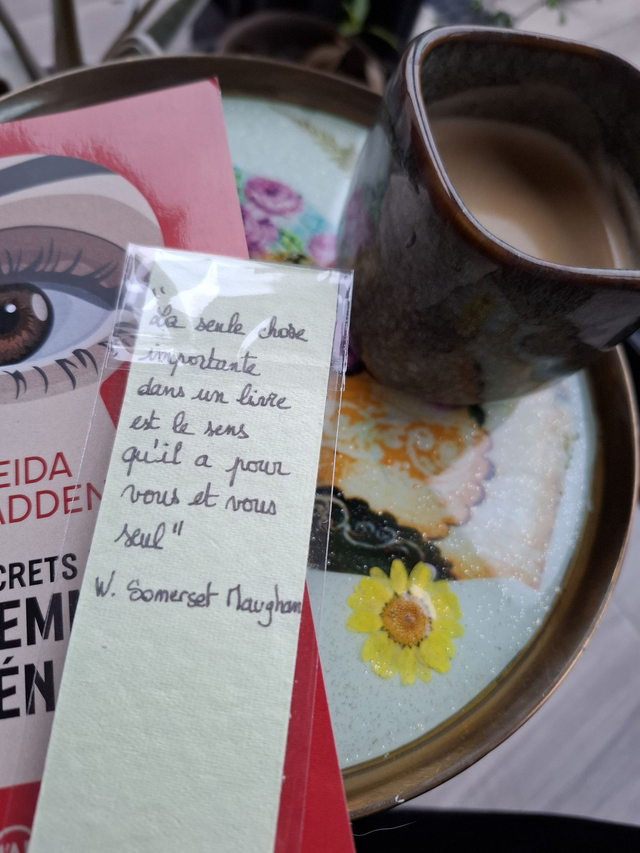 "La seule chose
importante
dans un livre
est le sens
qu'il a pour
vous et vous
seul"
W. Somerset Maugham
EIDA
ADDEN
CRETS
EM
ÉN